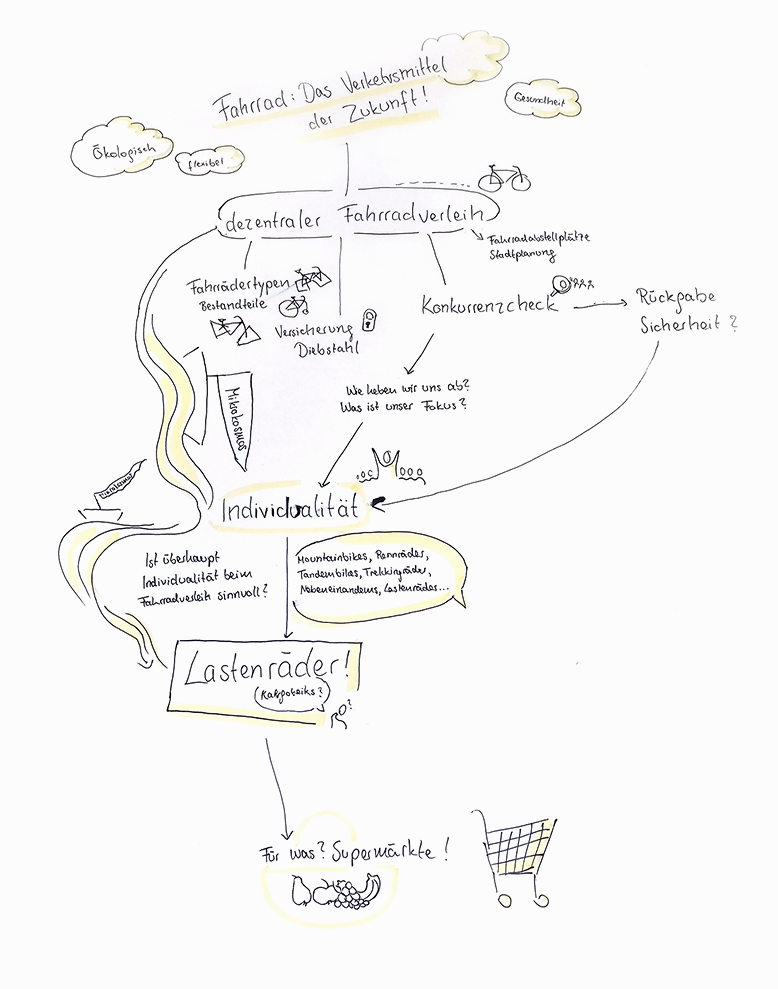 Fahrrad: Das Verkehrsmittel
der Zukunft!
Gesundheit
Ökologisch
flexibel
dezentraler Fahrradverleih
Fahrradabstellplätze
Stadtplanung
Fahrrädertypen
Bestandteile
Versicherung
Diebstahl
Konkurrenzcheck
Rückgabe
Sicherheit?
Mikrokosmos
Wie heben wir uns ab?
Was ist unser Fokus?
Individualität
Ist überhaupt
Individualität beim
Fahrradverleih sinnvoll?
Mountainbikes, Rennräder,
Tandembikes, Trekkingräder,
Nebeneinandems, Lastenräder...
Lastenräder!
Für was? Supermärkte!